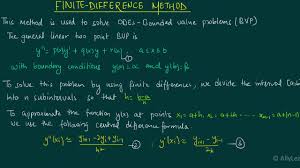 FINITE-DIFFERENCE METHOD
This method is used to solve ODEs-Bounded value problems (BVP)
The general linear two point BVP is
y'' = p(x)y' + q(x)y + r(x) , a ≤ x ≤ b
with boundary conditions y(a) = α and y(b) = β
To solve this problem by using finite differences, we divide the interval [a,b]
into n subintervals so that h = b-a/n
To approximate the function y(x) at points x₁ = a+h, ... = a+(n-1)h
we use the following central difference formula:
y''(xi) ≃ yi+1 - 2yi + yi-1 / h² ① ; y'(xi) ≃ yi+1 - yi-1 / ②